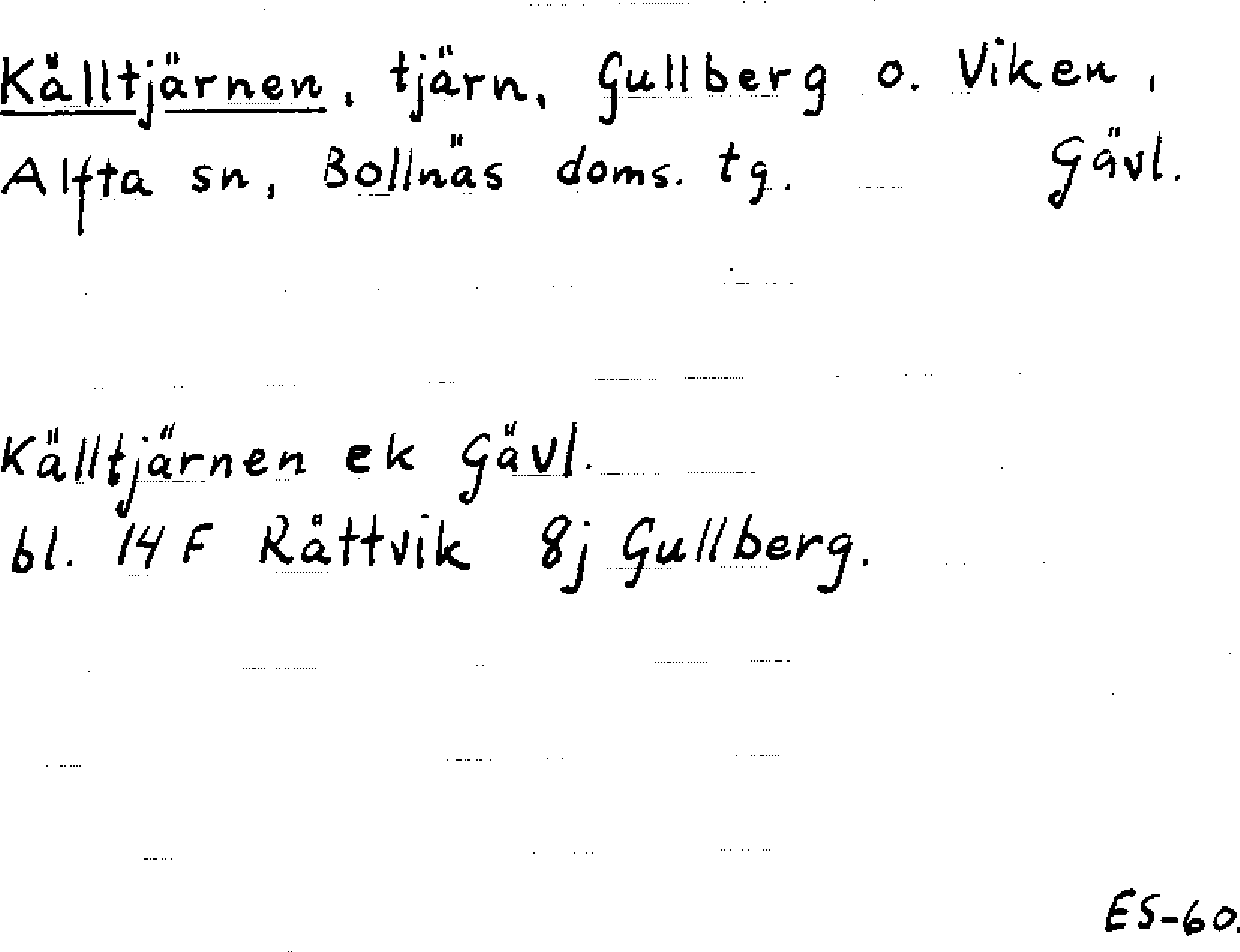 Källtjärnen, tjärn, Gullberg o. Viken,
Alfta sn, Bollnäs doms. tg. Gävl.
Källtjärnen ek Gävl.
bl. 14 F Rättvik 8j Gullberg.
ES-60.